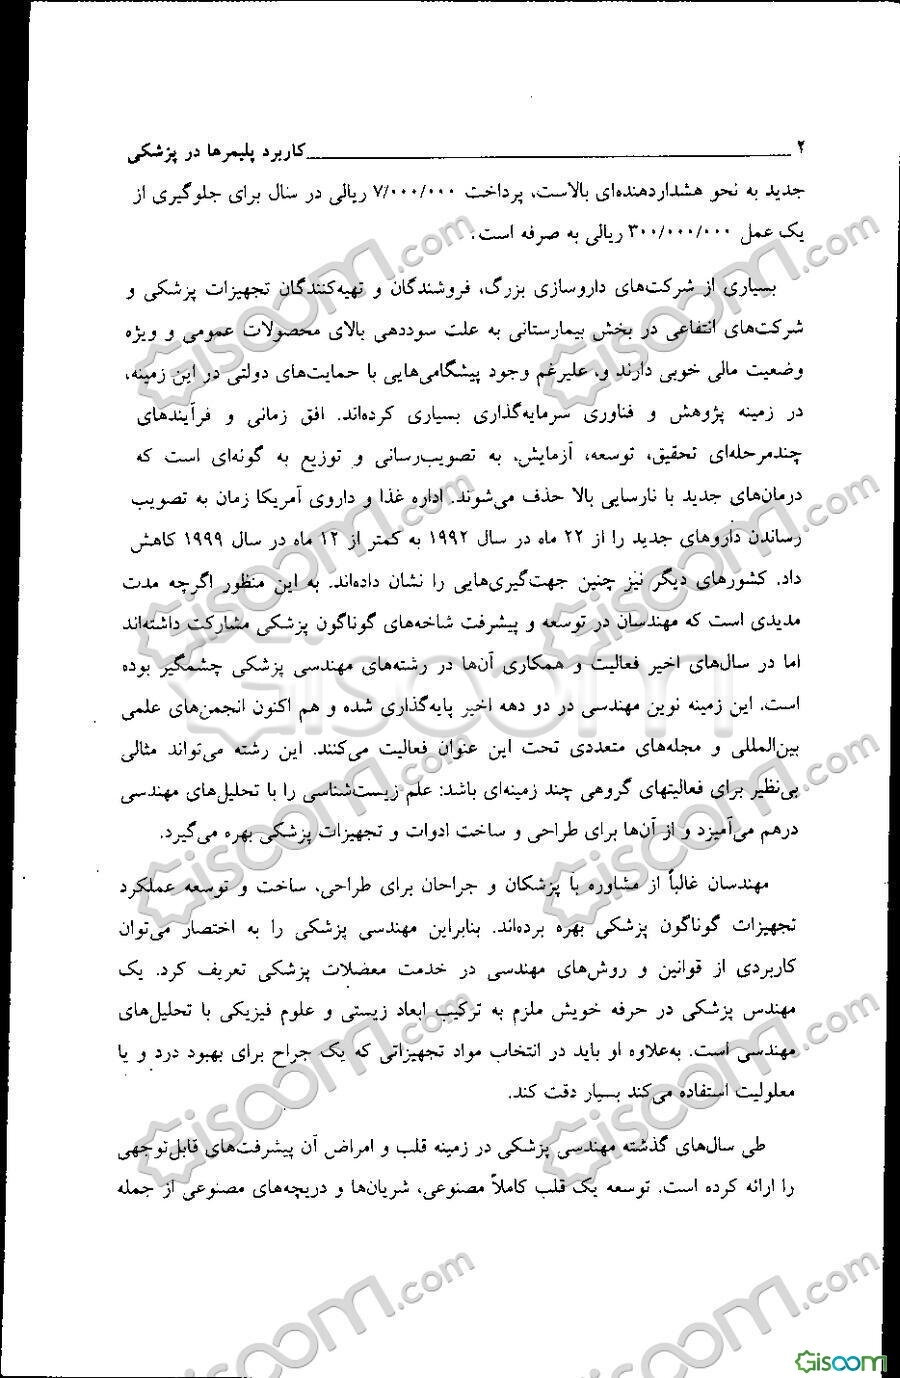 ۲ کاربرد پلیمرها در پزشکی
جدید به نحو هشداردهنده‌ای بالاست، پرداخت ۷/۰۰۰/۰۰۰ ریالی در سال برای جلوگیری از
یک عمل ۳۰۰/۰۰۰/۰۰۰ ریالی به صرفه است.
بسیاری از شرکت‌های داروسازی بزرگ، فروشندگان و تهیه‌کنندگان تجهیزات پزشکی و
شرکت‌های انتفاعی در بخش بیمارستانی به علت سوددهی بالای محصولات عمومی و ویژه
وضعیت مالی خوبی دارند و، علیرغم وجود پیشگامی‌هایی با حمایت‌های دولتی در این زمینه،
در زمینه پژوهش و فناوری سرمایه‌گذاری بسیاری کرده‌اند. افق زمانی و فرآیندهای
چندمرحله‌ای تحقیق، توسعه، آزمایش، به تصویب‌رسانی و توزیع به گونه‌ای است که
درمان‌های جدید با نارسایی بالا حذف می‌شوند. اداره غذا و داروی آمریکا زمان به تصویب
رساندن داروهای جدید را از ۲۲ ماه در سال ۱۹۹۲ به کمتر از ۱۲ ماه در سال ۱۹۹۹ کاهش
داد. کشورهای دیگر نیز چنین جهت‌گیری‌هایی را نشان داده‌اند. به این منظور اگرچه مدت
مدیدی است که مهندسان در توسعه و پیشرفت شاخه‌های گوناگون پزشکی مشارکت داشته‌اند
اما در سال‌های اخیر فعالیت و همکاری آن‌ها در رشته‌های مهندسی پزشکی چشمگیر بوده
است. این زمینه نوین مهندسی در دو دهه اخیر پایه‌گذاری شده و هم اکنون انجمن‌های علمی
بین‌المللی و مجله‌های متعددی تحت این عنوان فعالیت می‌کنند. این رشته می‌تواند مثالی
بی‌نظیر برای فعالیتهای گروهی چند زمینه‌ای باشد: علم زیست‌شناسی را با تحلیل‌های مهندسی
درهم می‌آمیزد و از آن‌ها برای طراحی و ساخت ادوات و تجهیزات پزشکی بهره می‌گیرد.
مهندسان غالباً از مشاوره با پزشکان و جراحان برای طراحی، ساخت و توسعه عملکرد
تجهیزات گوناگون پزشکی بهره برده‌اند. بنابراین مهندسی پزشکی را به اختصار می‌توان
کاربردی از قوانین و روش‌های مهندسی در خدمت معضلات پزشکی تعریف کرد. یک
مهندس پزشکی در حرفه خویش ملزم به ترکیب ابعاد زیستی و علوم فیزیکی با تحلیل‌های
مهندسی است. به‌علاوه او باید در انتخاب مواد تجهیزاتی که یک جراح برای بهبود درد و یا
معلولیت استفاده می‌کند بسیار دقت کند.
طی سال‌های گذشته مهندسی پزشکی در زمینه قلب و امراض آن پیشرفت‌های قابل‌توجهی
را ارائه کرده است. توسعه یک قلب کاملاً مصنوعی، شریان‌ها و دریچه‌های مصنوعی از جمله
Gisoom